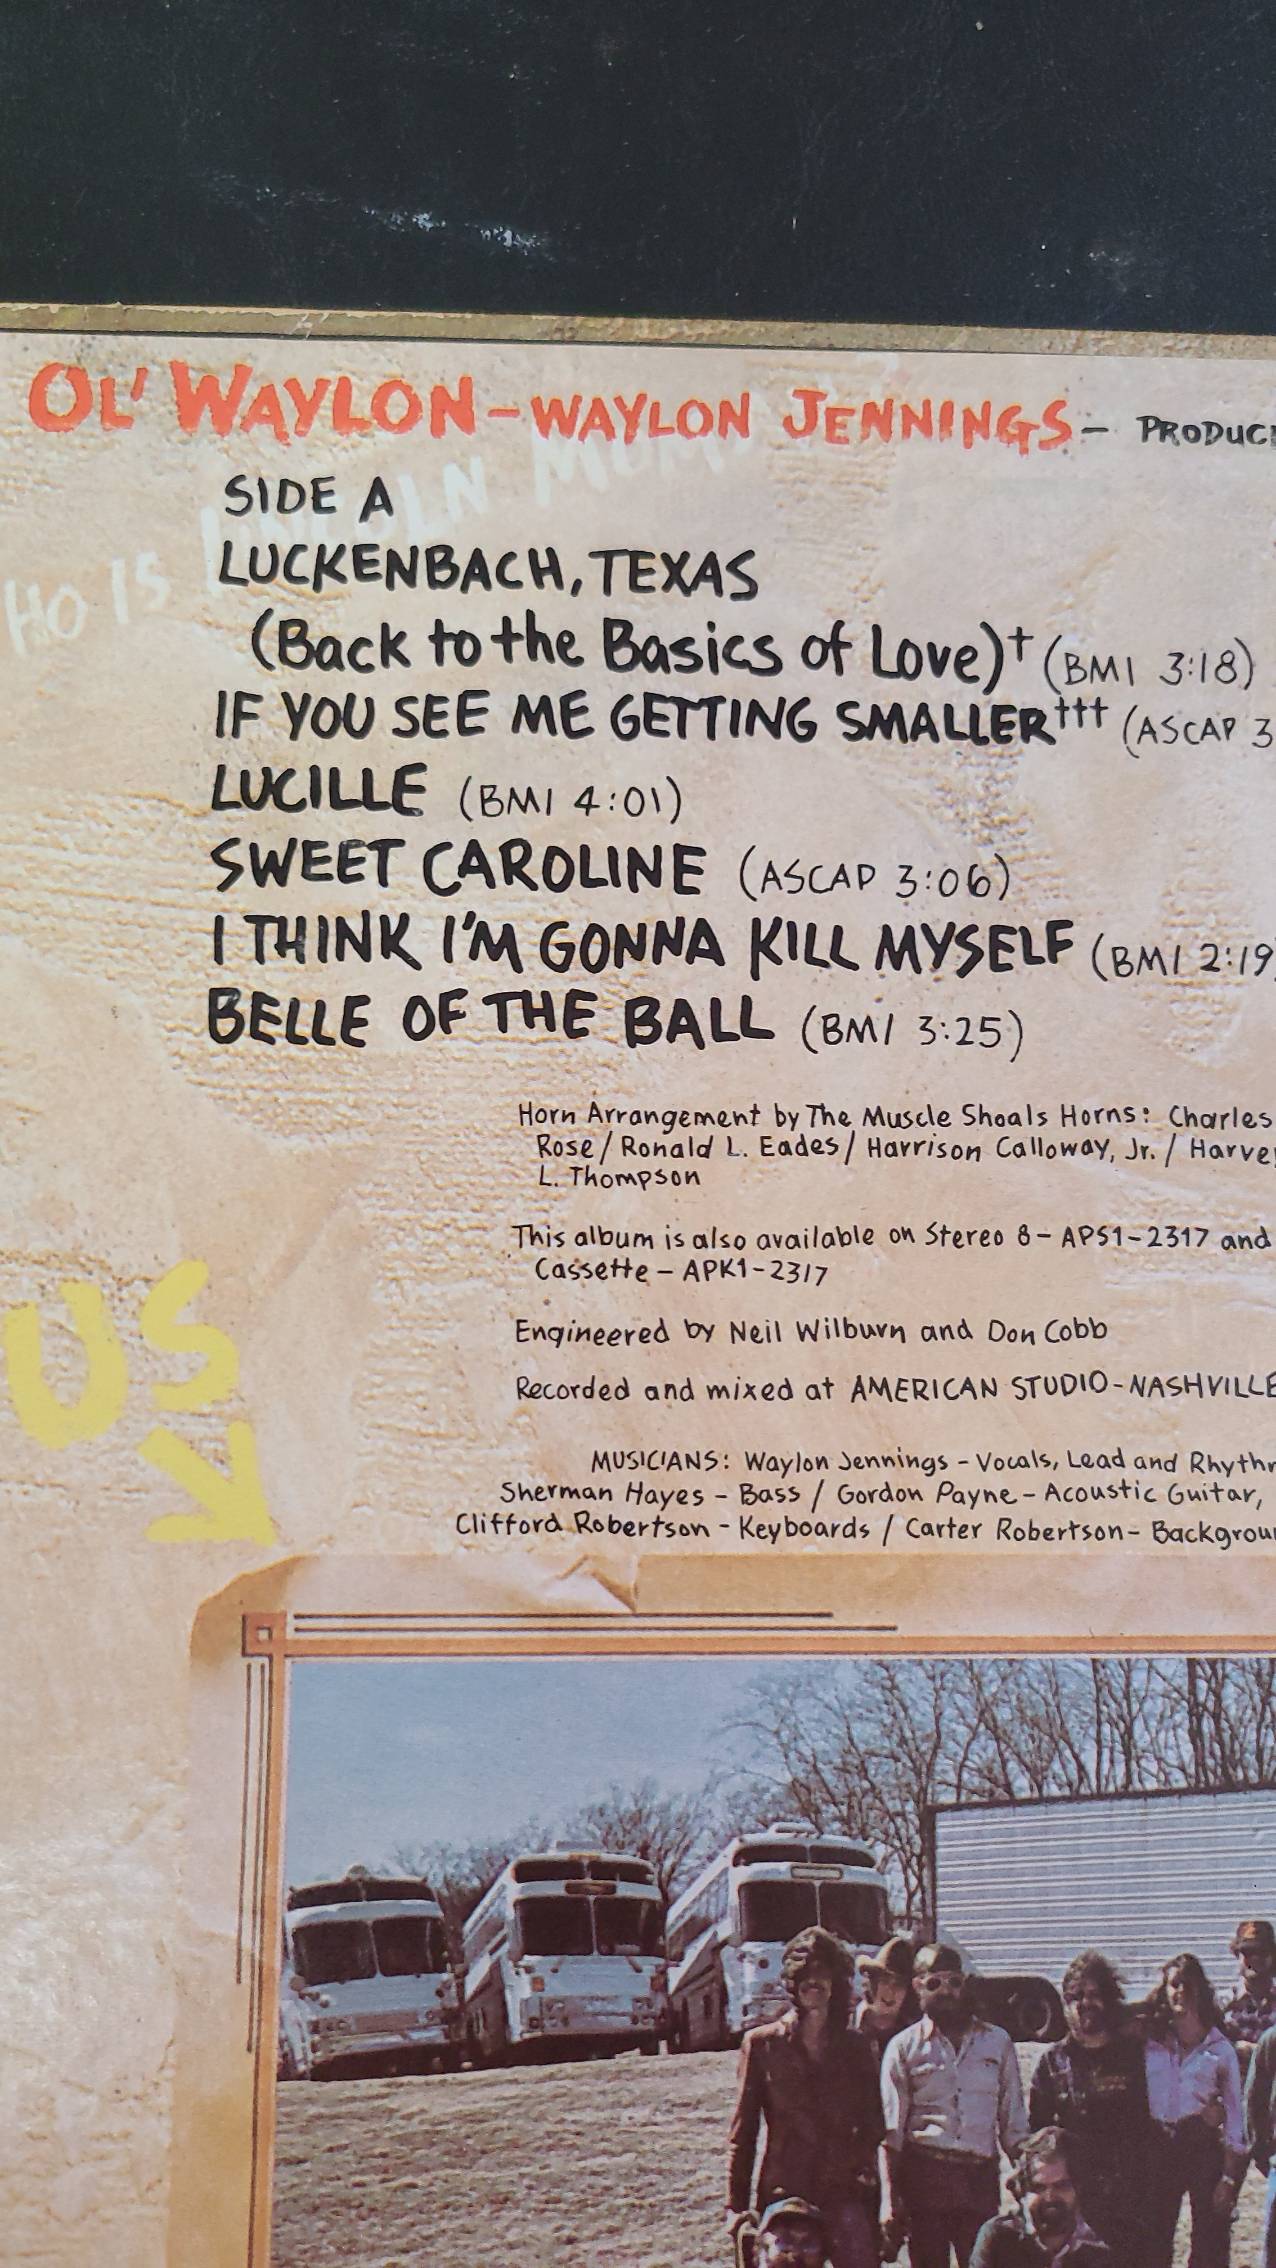 OL' WAYLON - WAYLON JENNINGS -
SIDE A
LUCKENBACH, TEXAS
(Back to the Basics of Love)† (BMI 3:18)
IF YOU SEE ME GETTING SMALLER††† (ASCAP 3
LUCILLE (BMI 4:01)
SWEET CAROLINE (ASCAP 3:06)
I THINK I'M GONNA KILL MYSELF (BMI 2:19)
BELLE OF THE BALL (BMI 3:25)
Horn Arrangement by The Muscle Shoals Horns: Charles
Rose / Ronald L. Eades / Harrison Calloway, Jr. / Harve
L. Thompson
This album is also available on Stereo 8 - APS1-2317 and
Cassette - APK1-2317
Engineered by Neil Wilburn and Don Cobb
Recorded and mixed at AMERICAN STUDIO-NASHVILLE
MUSICIANS: Waylon Jennings - Vocals, Lead and
Sherman Hayes - Bass / Gordon Payne - Acoustic Guitar,
Clifford Robertson - Keyboards / Carter Robertson -
US